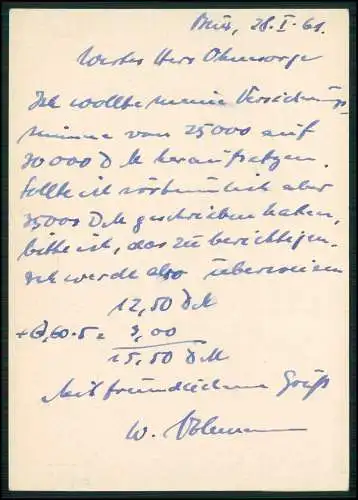 28.I.61.
Wertes Herr Ohnesorge
Ich wollte meine Versicherungs
summe von 25000 auf
30000 DM heraufsetzen.
Sollte ich irrtümlich aber
35000 DM geschrieben haben,
bitte ich, das zu berichtigen.
Ich werde also überweisen
12,50 DM
+ 0,60·5 = 3,00
15,50 DM
Mit freundlichem Gruß
W.